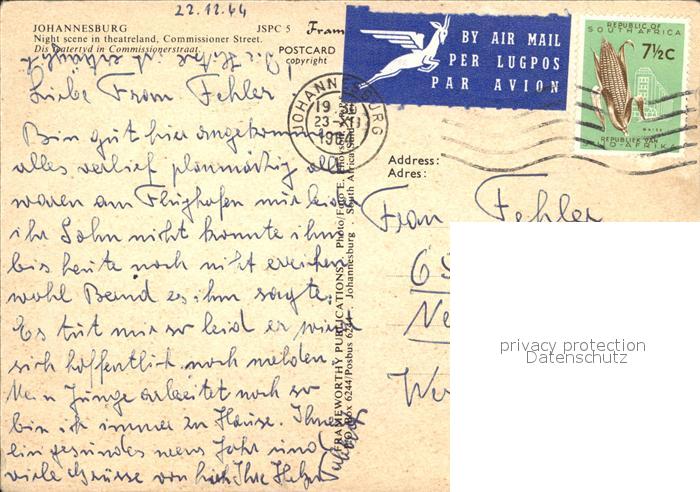 22.12.64
JOHANNESBURG JSPC 5
Night scene in theatreland, Commissioner Street.
Dis teatertyd in Commissionerstraat.
POSTCARD
copyright
BY AIR MAIL
PER LUGPOS
PAR AVION
REPUBLIC OF
SOUTH AFRICA
7½c
MAIZE
REPUBLIEK VAN
SUID-AFRIKA
JOHANNESBURG
23-XII
1964
Liebe Frau Fehler!
Bin gut hier angekommen
alles verlief planmäßig alle
waren am Flughafen nur leider
ihr Sohn nicht konnte ihn
bis heute noch nicht erreichen
wohl Bernd es ihm sagte.
Es tut mir so leid er wird
sich hoffentlich noch melden.
Mein Junge arbeitet noch so
bin ich immer zu Hause. Ihnen
ein gesundes neues Jahr und
viele Grüsse von Ihre
Address:
Adres:
Frau Fehler
FRAMEWORTHY PUBLICATIONS
PO Box 6244/Posbus 6244, Johannesburg - South Africa
privacy protection
Datenschutz